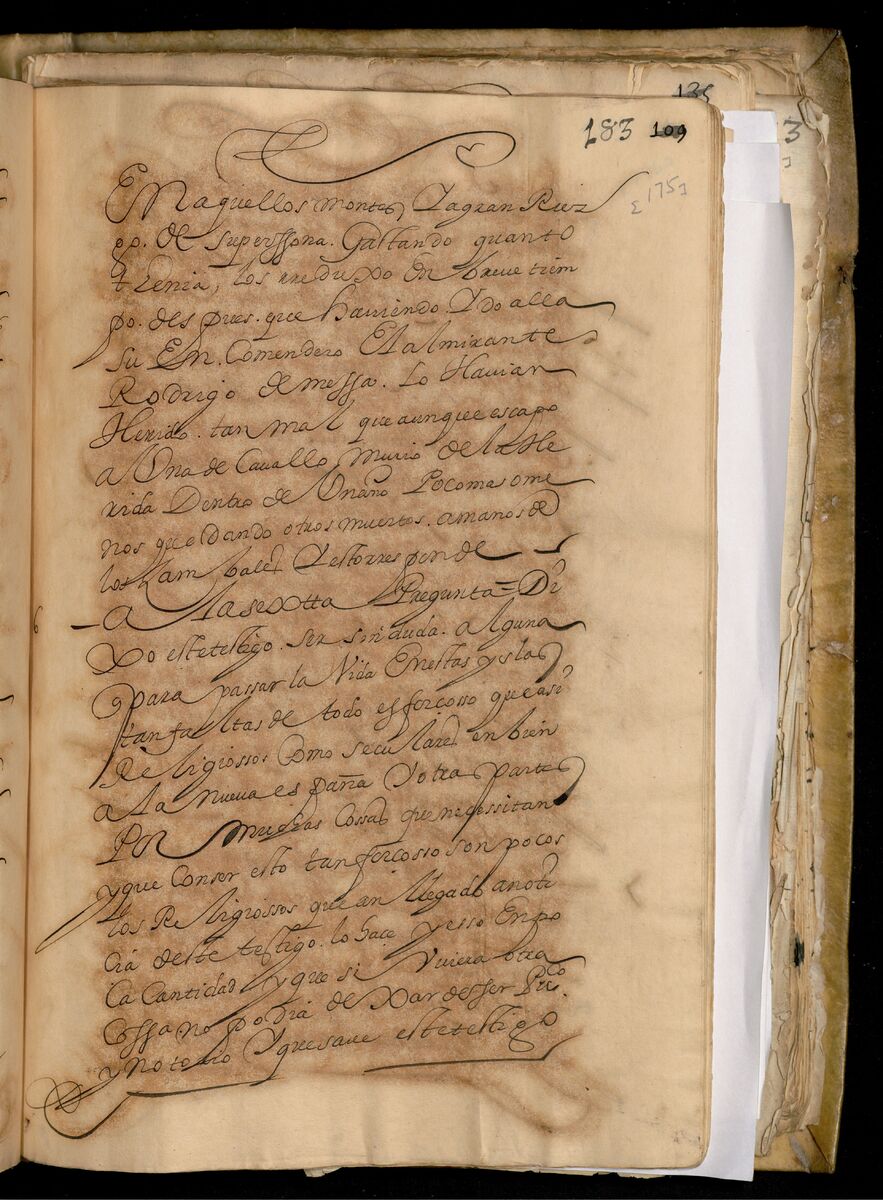 135
183 109
3
[175]
En aquellos montes, Y agran Riez
go. de superssona. Gastando quanto
thenia, los rreduxo En breue tiem
po. des pues. que haviendo. Ydo alla
su En. Comendero El almirante
Rodrigo de messa. Lo Havian
Herido. tan mal que aunque escapo
a Una de Cavallo murio de la He
rida Dentro de Un año Poco mas o me
nos quedando otros muertos. a manos de
los Zambales Y esto rresponde
A La sextta Pregunta = Di
xo este testigo. ser sin duda. alguna
para passar la Vida En estas yslas
tan faltas de todo es forcosso que asi
Religiossos Como seculares enbien
a La nueva españa Y otras partes
Por muchas Cossas que necessitan
y que Con ser esto tan forcosso son pocos
los Religiossos que an llegado a noti
cia deste testigo. lo hace y esso En po
Ca Cantidad y que si Vviera otra
Cossa no podia dexar de sser Puco.
y notorio Y que save este testigo
6